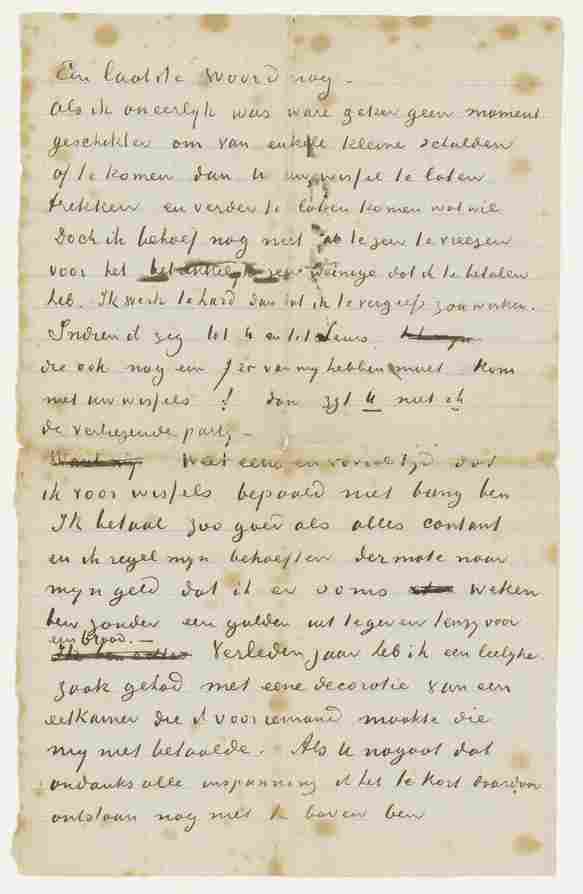 Een laatste woord nog –
Als ik oneerlijk was ware zeker geen moment
geschikter om van enkele kleine schulden
af te komen dan u uw wissel te laten
trekken en verder te laten komen wat wil
Doch ik behoef nog niet te zeer te vreezen
voor het weinige dat ik te betalen
heb. Ik werk te hard dan dat ik te vergeefs zou werken.
Indien ik zeg tot U en tot Leurs
die ook nog een f van my hebben moet kom
met uw wissels ! dan zyt U niet ik
de verliezende party –
Weet eens en voor altijd dat
ik voor wissels bepaald niet bang ben
Ik betaal zoo goed als alles contant
en ik regel myn behoeften dermate naar
myn geld dat ik er soms weken
ben zonder een gulden uit te geven tenzy voor
een brood. –
Verleden jaar heb ik een leelyke
zaak gehad met eene decoratie van een
eetkamer die ik voor iemand maakte die
my niet betaalde. Als U nagaat dat
ondanks alle inspanning ik het te kort daardoor
ontstaan nog niet te boven ben